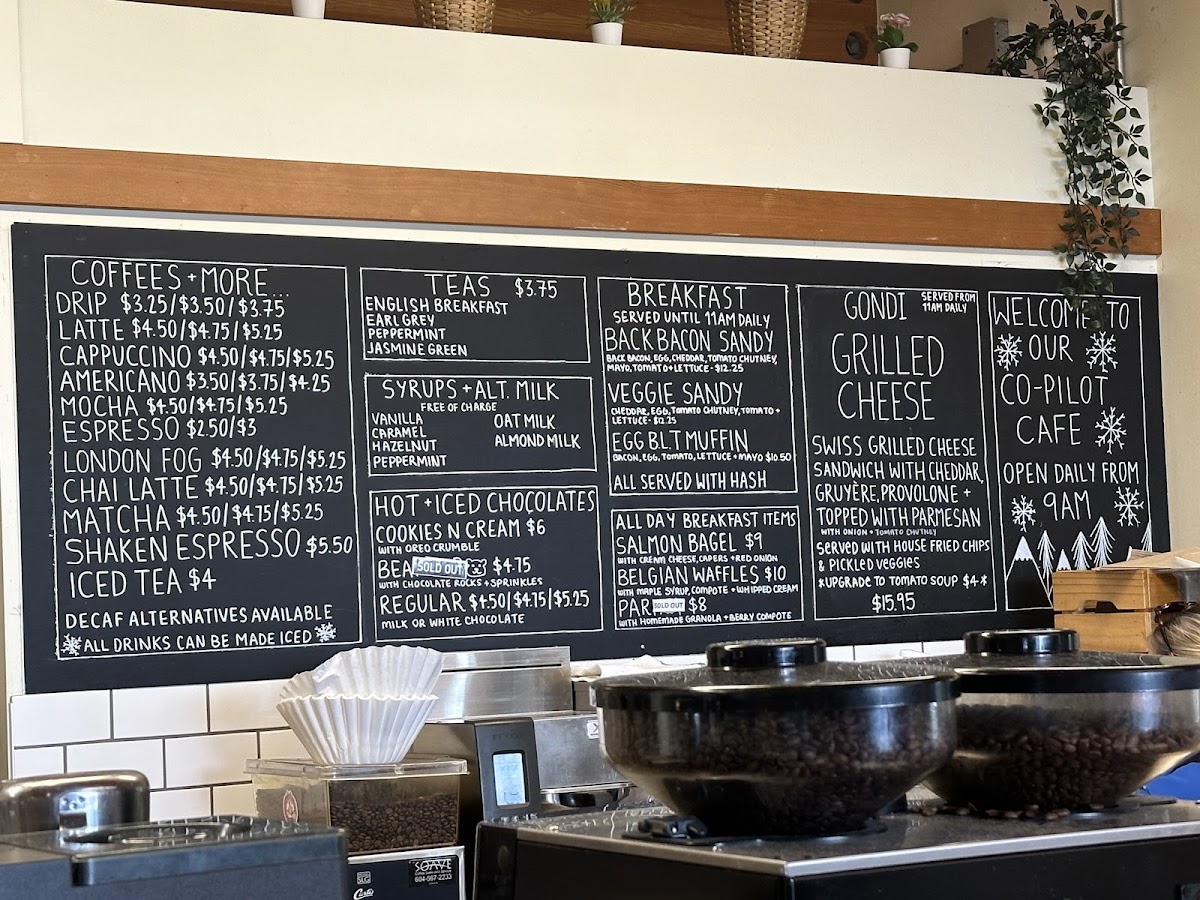 COFFEES + MORE
DRIP $3.25/$3.50/$3.75
LATTE $4.50/$4.75/$5.25
CAPPUCCINO $4.50/$4.75/$5.25
AMERICANO $3.50/$3.75/$4.25
MOCHA $4.50/$4.75/$5.25
ESPRESSO $2.50/$3
LONDON FOG $4.50/$4.75/$5.25
CHAI LATTE $4.50/$4.75/$5.25
MATCHA $4.50/$4.75/$5.25
SHAKEN ESPRESSO $5.50
ICED TEA $4
DECAF ALTERNATIVES AVAILABLE
ALL DRINKS CAN BE MADE ICED
TEAS $3.75
ENGLISH BREAKFAST
EARL GREY
PEPPERMINT
JASMINE GREEN
SYRUPS + ALT. MILK
FREE OF CHARGE
VANILLA
CARAMEL
HAZELNUT
PEPPERMINT
OAT MILK
ALMOND MILK
HOT + ICED CHOCOLATES
COOKIES N CREAM $6
WITH OREO CRUMBLE
BEA SOLD OUT $4.75
WITH CHOCOLATE ROCKS + SPRINKLES
REGULAR $4.50/$4.75/$5.25
MILK OR WHITE CHOCOLATE
BREAKFAST
SERVED UNTIL 11AM DAILY
BACK BACON SANDY
BACK BACON, EGG, CHEDDAR, TOMATO CHUTNEY,
MAYO, TOMATO + LETTUCE - $12.25
VEGGIE SANDY
CHEDDAR, EGG, TOMATO CHUTNEY, TOMATO +
LETTUCE - $12.25
EGG BLT MUFFIN
BACON, EGG, TOMATO, LETTUCE + MAYO $10.50
ALL SERVED WITH HASH
ALL DAY BREAKFAST ITEMS
SALMON BAGEL $9
WITH CREAM CHEESE, CAPERS + RED ONION
BELGIAN WAFFLES $10
WITH MAPLE SYRUP, COMPOTE + WHIPPED CREAM
PAR SOLD OUT $8
WITH HOMEMADE GRANOLA + BERRY COMPOTE
GONDI
SERVED FROM
11AM DAILY
GRILLED
CHEESE
SWISS GRILLED CHEESE
SANDWICH WITH CHEDDAR,
GRUYÈRE, PROVOLONE +
TOPPED WITH PARMESAN
WITH ONION + TOMATO CHUTNEY
SERVED WITH HOUSE FRIED CHIPS
& PICKLED VEGGIES
*UPGRADE TO TOMATO SOUP $4*
$15.95
WELCOME TO
OUR
CO-PILOT
CAFE
OPEN DAILY FROM
9AM
SLG
SOAVE
604-567-2233
Curtis